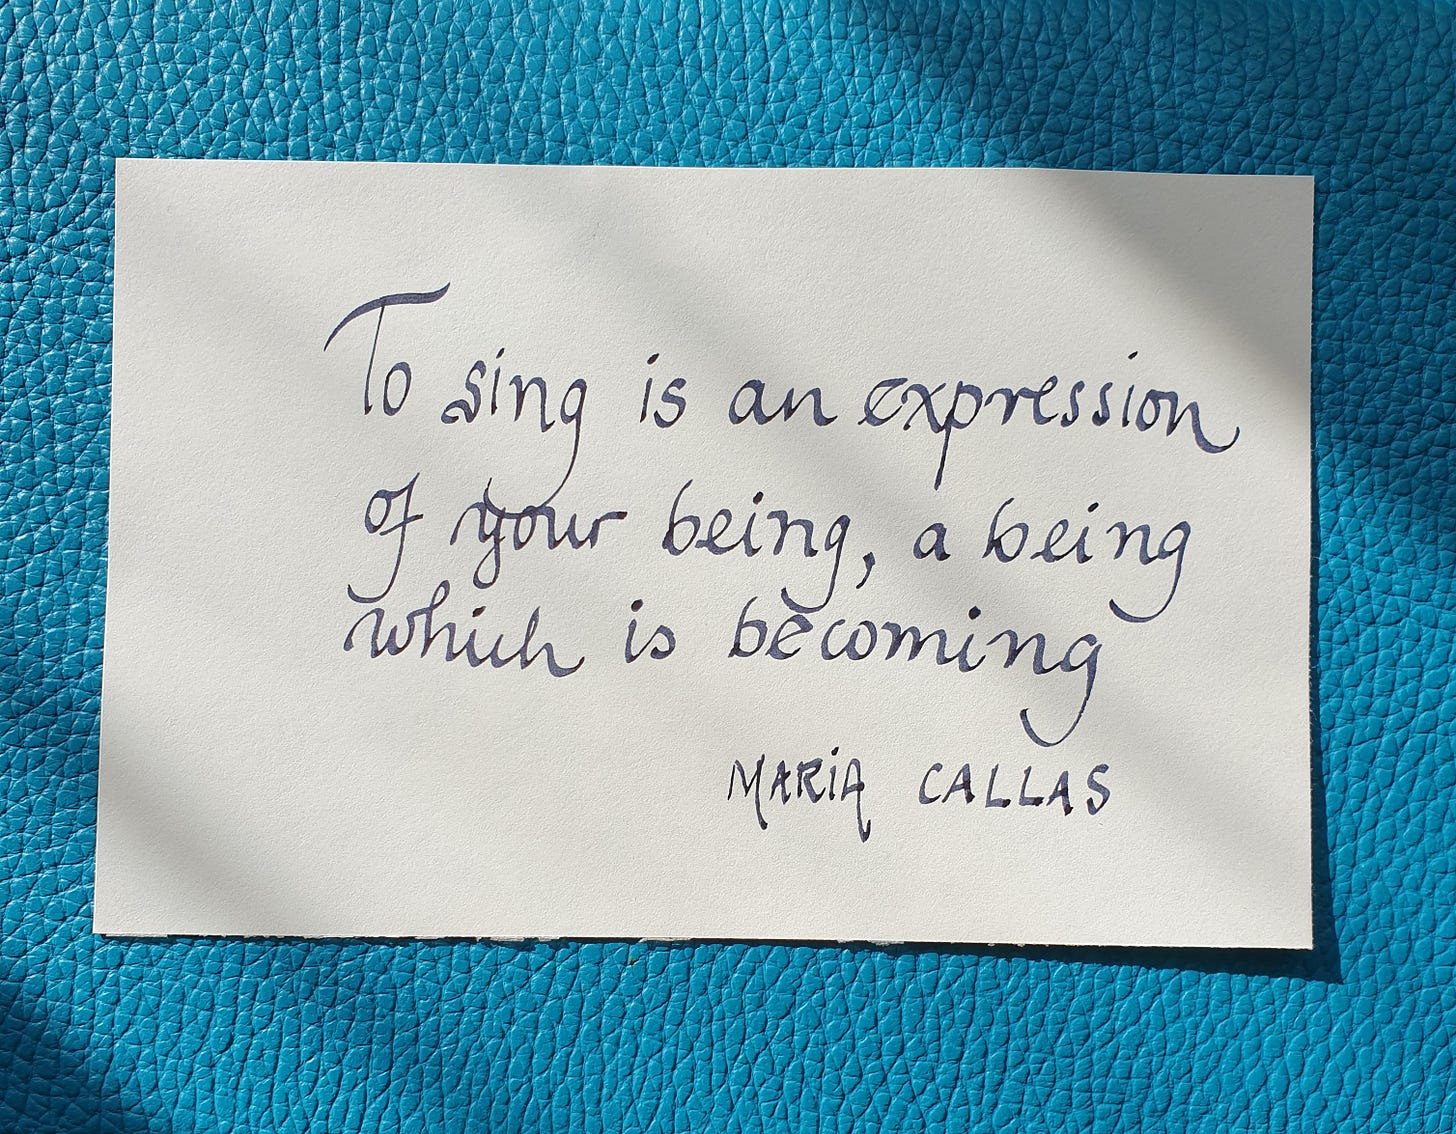 To sing is an expression
of your being, a being
which is becoming
MARiA CALLAS